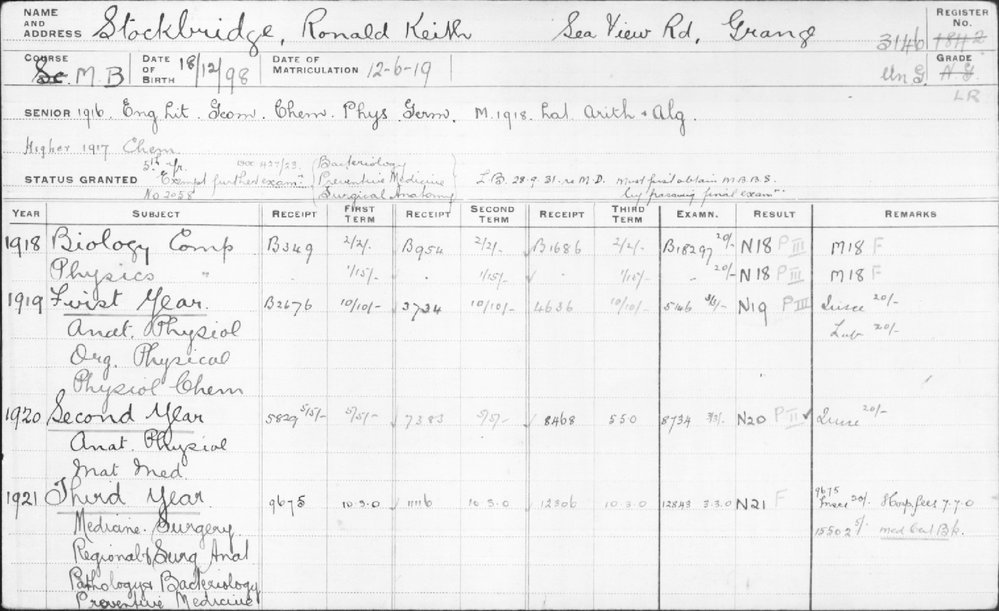 NAME AND ADDRESS Stockbridge, Ronald Keith Sea View Rd, Grange REGISTER No. 3146 1842
COURSE Sc. M.B DATE OF BIRTH 18/12/98 DATE OF MATRICULATION 12-6-19 GRADE Un G N.G.
LR
SENIOR 1916. Eng Lit. Geom. Chem. Phys. Germ. M. 1918. Lat. Arith + Alg.
Higher 1917 Chem
5th yr.
STATUS GRANTED "Exempt further exam" (Bacteriology
Preventive Medicine
Surgical Anatomy)
No 2058
L.B. 28.9.31. re M.D. Must first obtain M.B.B.S.
by passing final exam"
YEAR SUBJECT RECEIPT FIRST TERM RECEIPT SECOND TERM RECEIPT THIRD TERM EXAMN. RESULT REMARKS
1918 Biology Comp B349 2/2/- B954 2/2/- B1686 2/2/- B18297 20/- N18 P III M18 F
Physics " 1/15/- 1/15/- 1/15/- 20/- N18 P III M18 F
1919 First Year B2676 10/10/- 3734 10/10/- 4636 10/10/- 5146 3/3/- N19 P III 20/-
Anat. Physiol Lab 20/-
Org. Physical
Physiol Chem
1920 Second Year 5829 5/5/- 5/5/- 7383 5/5/- 8468 5 5 0 8734 3/3/- N20 P II 20/-
Anat. Physiol
Mat Med.
1921 Third Year 9675 10.3.0 11116 10.3.0 12306 10.3.0 12843 3.3.0 N21 F 9675 20/- Hosp fees 7.7.0
Medicine. Surgery 15502 5/-
Regional & Surg Anat
Pathology & Bacteriology
Preventive Medicine